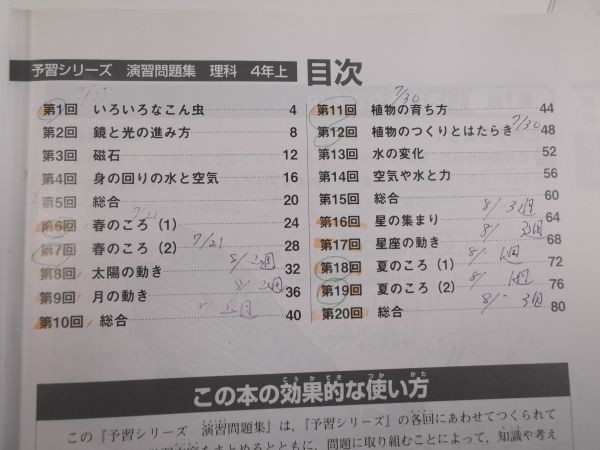 予習シリーズ 演習問題集 理科 4年上 目次
第1回 いろいろなこん虫 4
第2回 鏡と光の進み方 8
第3回 磁石 12
第4回 身の回りの水と空気 16
第5回 総合 20
7/21
第6回 春のころ (1) 24
第7回 春のころ (2) 7/21 28
第8回 太陽の動き 32
第9回 月の動き 36
第10回 総合 40
7/30
第11回 植物の育ち方 44
第12回 植物のつくりとはたらき 7/30 48
第13回 水の変化 52
第14回 空気や水と力 56
第15回 総合 60
第16回 星の集まり 8/ 3週 64
第17回 星座の動き 8/ 3週 68
第18回 夏のころ (1) 8/ 1週 72
第19回 夏のころ (2) 8/ 1週 76
第20回 総合 8/ 3週 80
この本の効果的な使い方
こうかてき つか かた
この『予習シリーズ 演習問題集』は,『予習シリーズ』の各回にあわせてつくられて
をまとめるとともに,問題に取り組むことによって,知識や考え